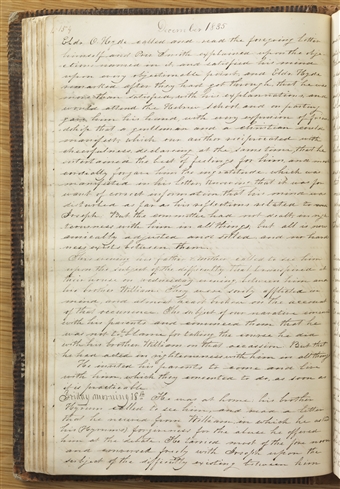 December 1835
Elder O. Hyde called and read the foregoing letter
himself, and Pres. Smith explained upon the obje-
ctions named in it and satisfied his mind
upon every objectionable point, and Elder Hyde
remarked after they had got through, that he was
more than satisfied with his explanations and
would attend the Hebrew school and in parting
gave him his hand, with every expression of frie-
ndship that a gentleman and a christian could
manifest, which our author reciprocated with
cheerfulness, declaring at the same time, that he
entertained the best of feelings for him, and
cordially forgave him the ingratitude which was
manifested in his letter, knowing that it was for
want of correct information, that his mind was
disturbed as far as his reflections related to me
Joseph. But the committee had not dealt in righ-
teousness with him in all things, but all is
amicably adjusted and settled and no hard-
ness exists between them.
This evening his father & mother called to see him
upon the subject of the difficulty that transpired at
their house on wednesday evening between him and
his brother William. They were sorely afflicted in
mind and almost heart broken on the account
of that occurrence. The subject of our narrative conversed
with his parents and convinced them that he
was not to blame for taking the course he did
with his brother William on that occasion. But that
he had acted in righteousness with him in all things
He invited his parents to come and live
with him, which they consented to do, as soon as
it is practicable
Friday morning 18th He was at home his brother
Hyrum called to see him, and read a letter
that he received from William, in which he asks
his (Hyrum's) forgiveness for the abuse he offered
him at the debate. He tarried most of the fore noon
and conversed freely with Joseph upon the
subject of the difficulty existing between him